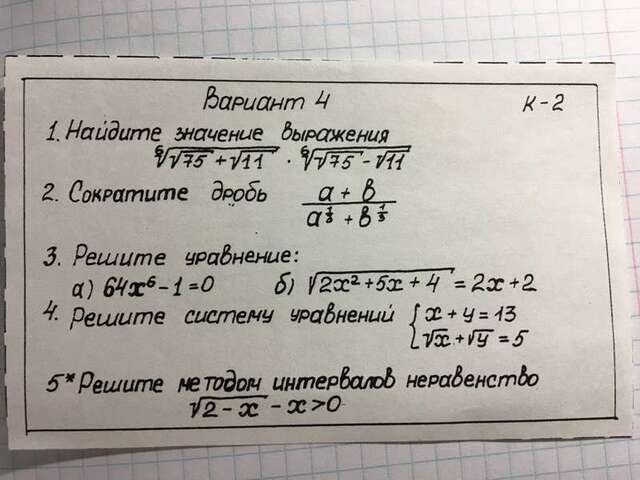 Вариант 4 К-2
1. Найдите значение выражения
⁶√(√75 + √11) · ⁶√(√75 - √11)
2. Сократите дробь (a + b)/(a^(1/3) + b^(1/3))
3. Решите уравнение:
а) 64x⁶ - 1 = 0 б) √(2x² + 5x + 4) = 2x + 2
4. Решите систему уравнений { x + y = 13
√x + √y = 5
5* Решите методом интервалов неравенство
√(2 - x) - x > 0